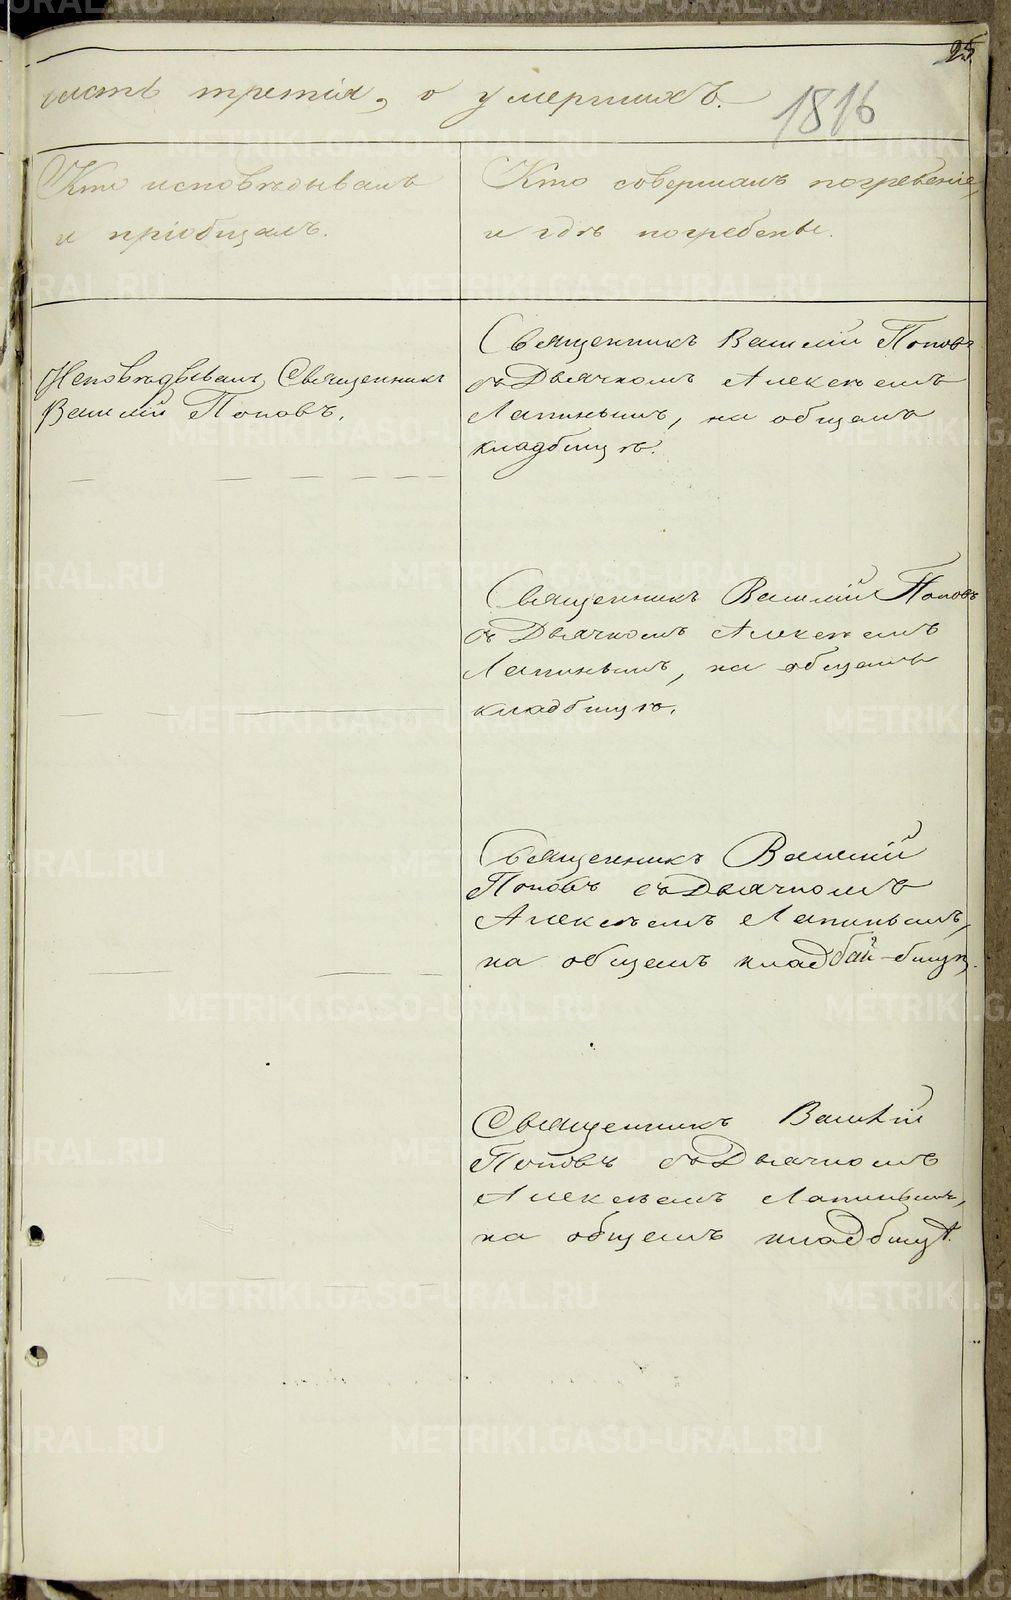 25
часть третія, о умершихъ.
1816
Кто исповѣдывалъ
и пріобщалъ.
Кто совершалъ погребеніе,
и гдѣ погребены.
Исповѣдывалъ, Священникъ
Василій Поповъ.
Священникъ Василій Поповъ
съ Дьячкомъ Алексѣемъ
Лапинымъ, на общемъ
кладбищѣ.
Священникъ Василій Поповъ
съ Дьячкомъ Алексѣемъ
Лапинымъ, на общемъ
кладбищѣ.
Священникъ Василій
Поповъ съ Дьячкомъ
Алексѣемъ Лапинымъ,
на общемъ кладбищѣ.
Священникъ Василій
Поповъ съ Дьячкомъ
Алексѣемъ Лапинымъ,
на общемъ кладбищѣ.
METRIKI.GASO-URAL.RU